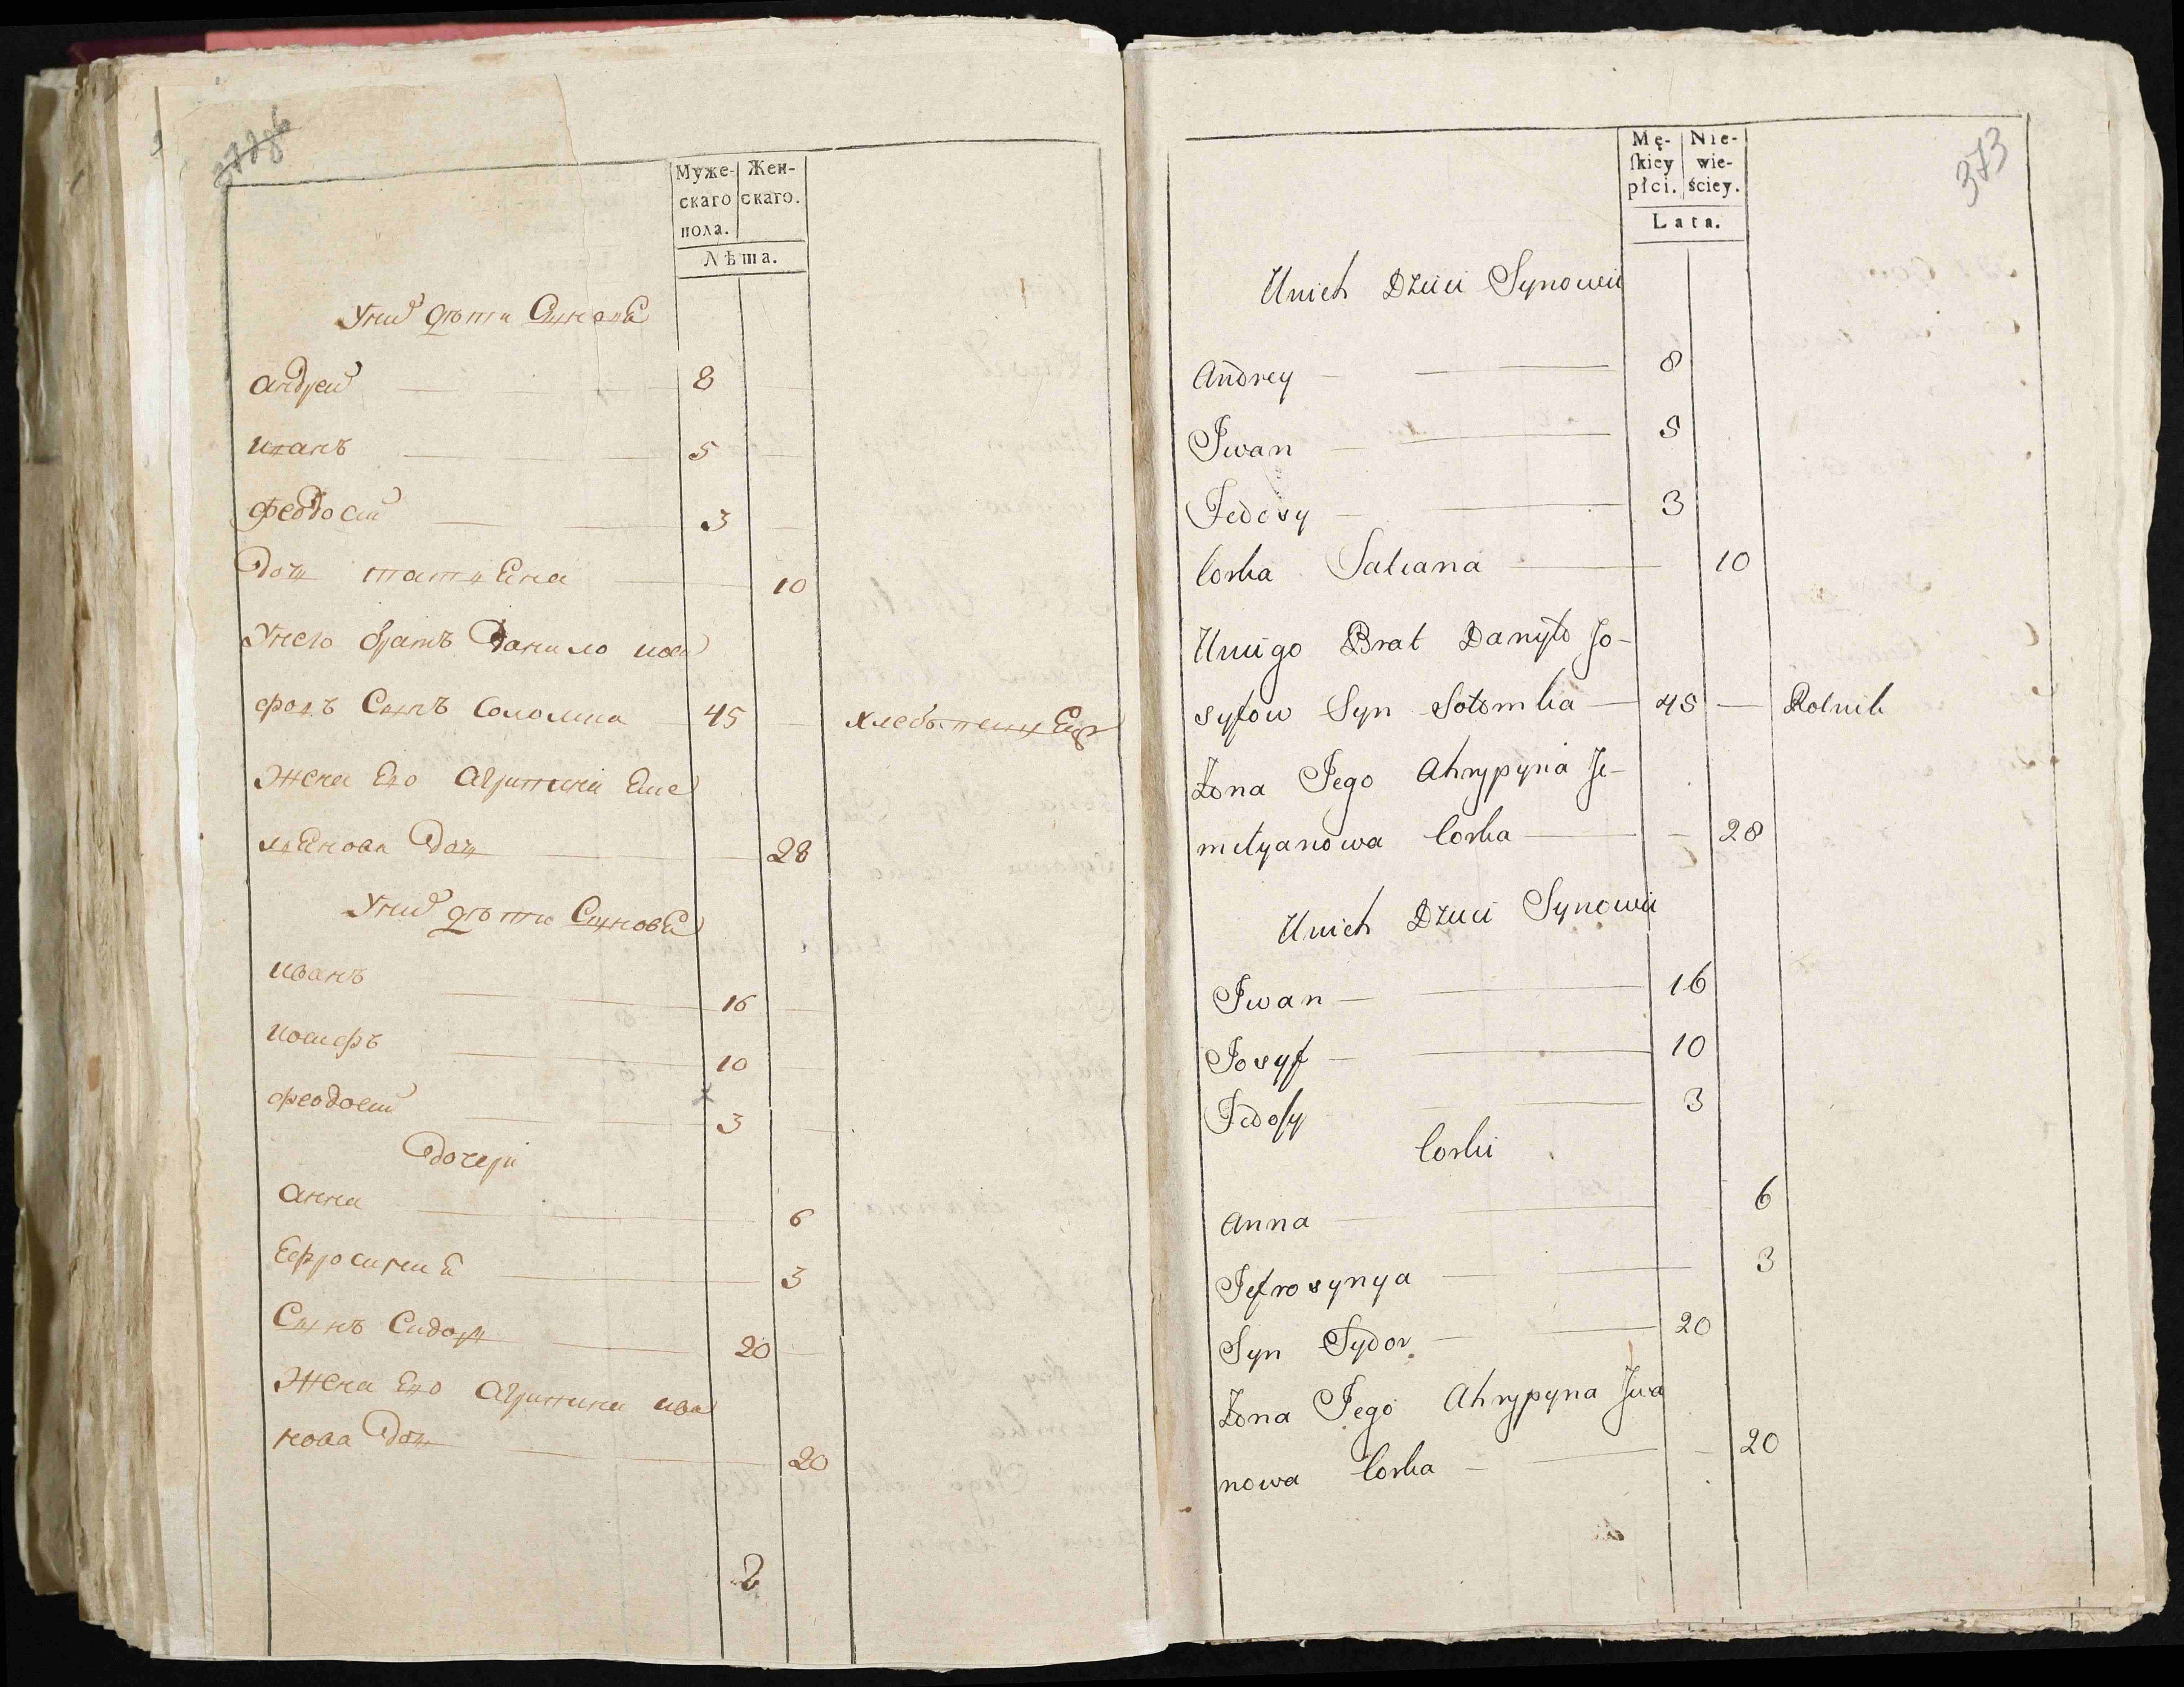 Муже-
скаго
пола.
Жен-
скаго.
Лѣта.
У них дѣти Сыновя
Андрей 8
Иванъ 5
Феодосий 3
Дочь татьяна 10
У него братъ Данило иоси
фовъ Сынъ Соломка 45 хлебопашец
Жена Его Агрипина Еме
льянова Дочь 28
У них дѣти Сыновя
Иванъ 16
Иосифъ 10
Феодосий 3
Дочери
Анна 6
Ефросиния 3
Сынъ Сидоръ 20
Жена Его Агрипина ива
нова Дочь 20
2
373
Mę-
ſkiey
płci.
Nie-
wie-
ściey.
Lata.
Unich Dzieci Synowie
Andrey 8
Iwan 5
Fedosy 3
Corka Tatiana 10
Uniego Brat Danyło Jo-
syfow Syn Sołomka 45 Rolnik
Żona Jego Ahrypyna Je-
melyanowa Corka 28
Unich Dzieci Synowie
Iwan 16
Josyf 10
Fedoſy 3
Corki
Anna 6
Jefrosynya 3
Syn Sydor 20
Żona Jego Ahrypyna Iwa
nowa Corka 20